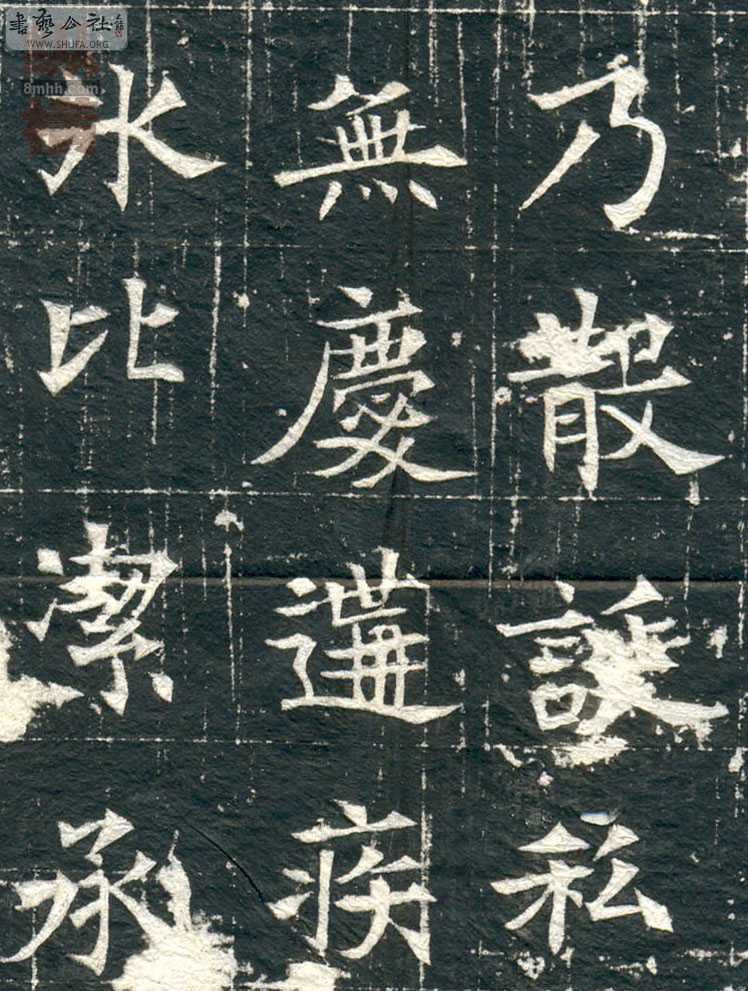 書藝公社
WWW.SHUFA.ORG
8mhh.com
乃散私
無慶遘疾
水比潔承